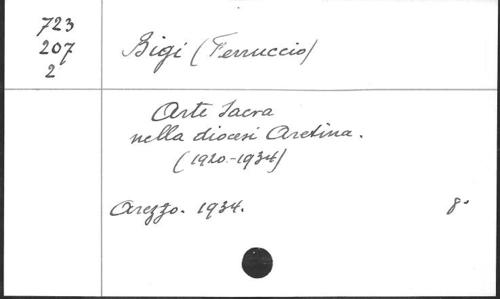 723
207
2
Bigi (Ferruccio)
Arte Sacra
nella diocesi Aretina.
(1920-1934)
Arezzo. 1934. 8°